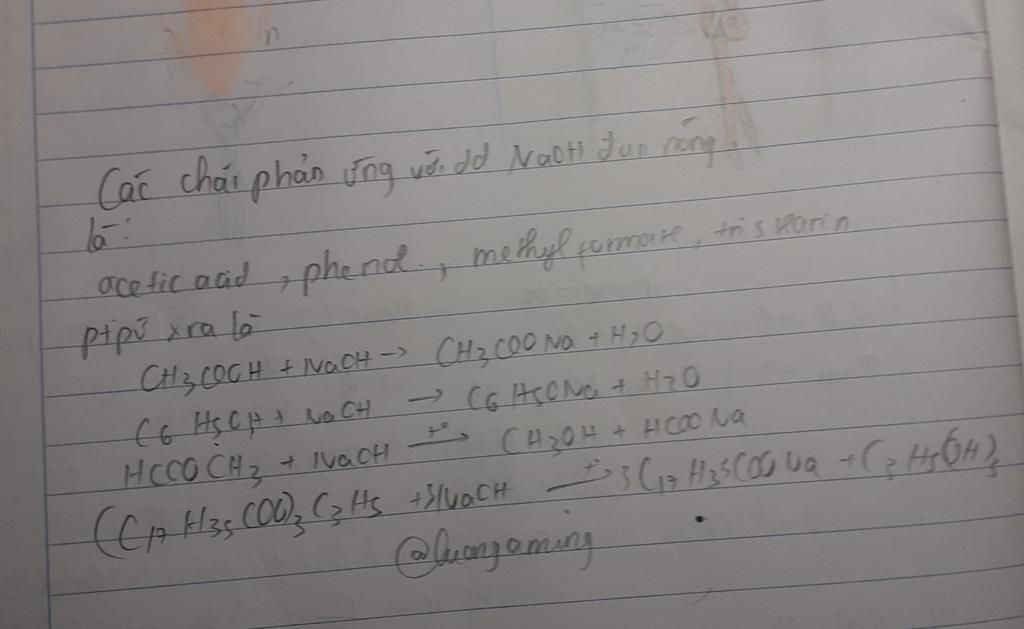 Các chái phản ứng với dd NaOH đun nóng.
là:
acetic acid, phenol, methyl formate, tristearin
ptpứ xra là
CH3COOH + NaOH → CH3COONa + H2O
C6H5OH + NaOH → C6H5ONa + H2O
HCOOCH3 + NaOH t°→ CH3OH + HCOONa
(C17H35COO)3C3H5 + 3NaOH t°→ 3C17H35COONa + C3H5(OH)3